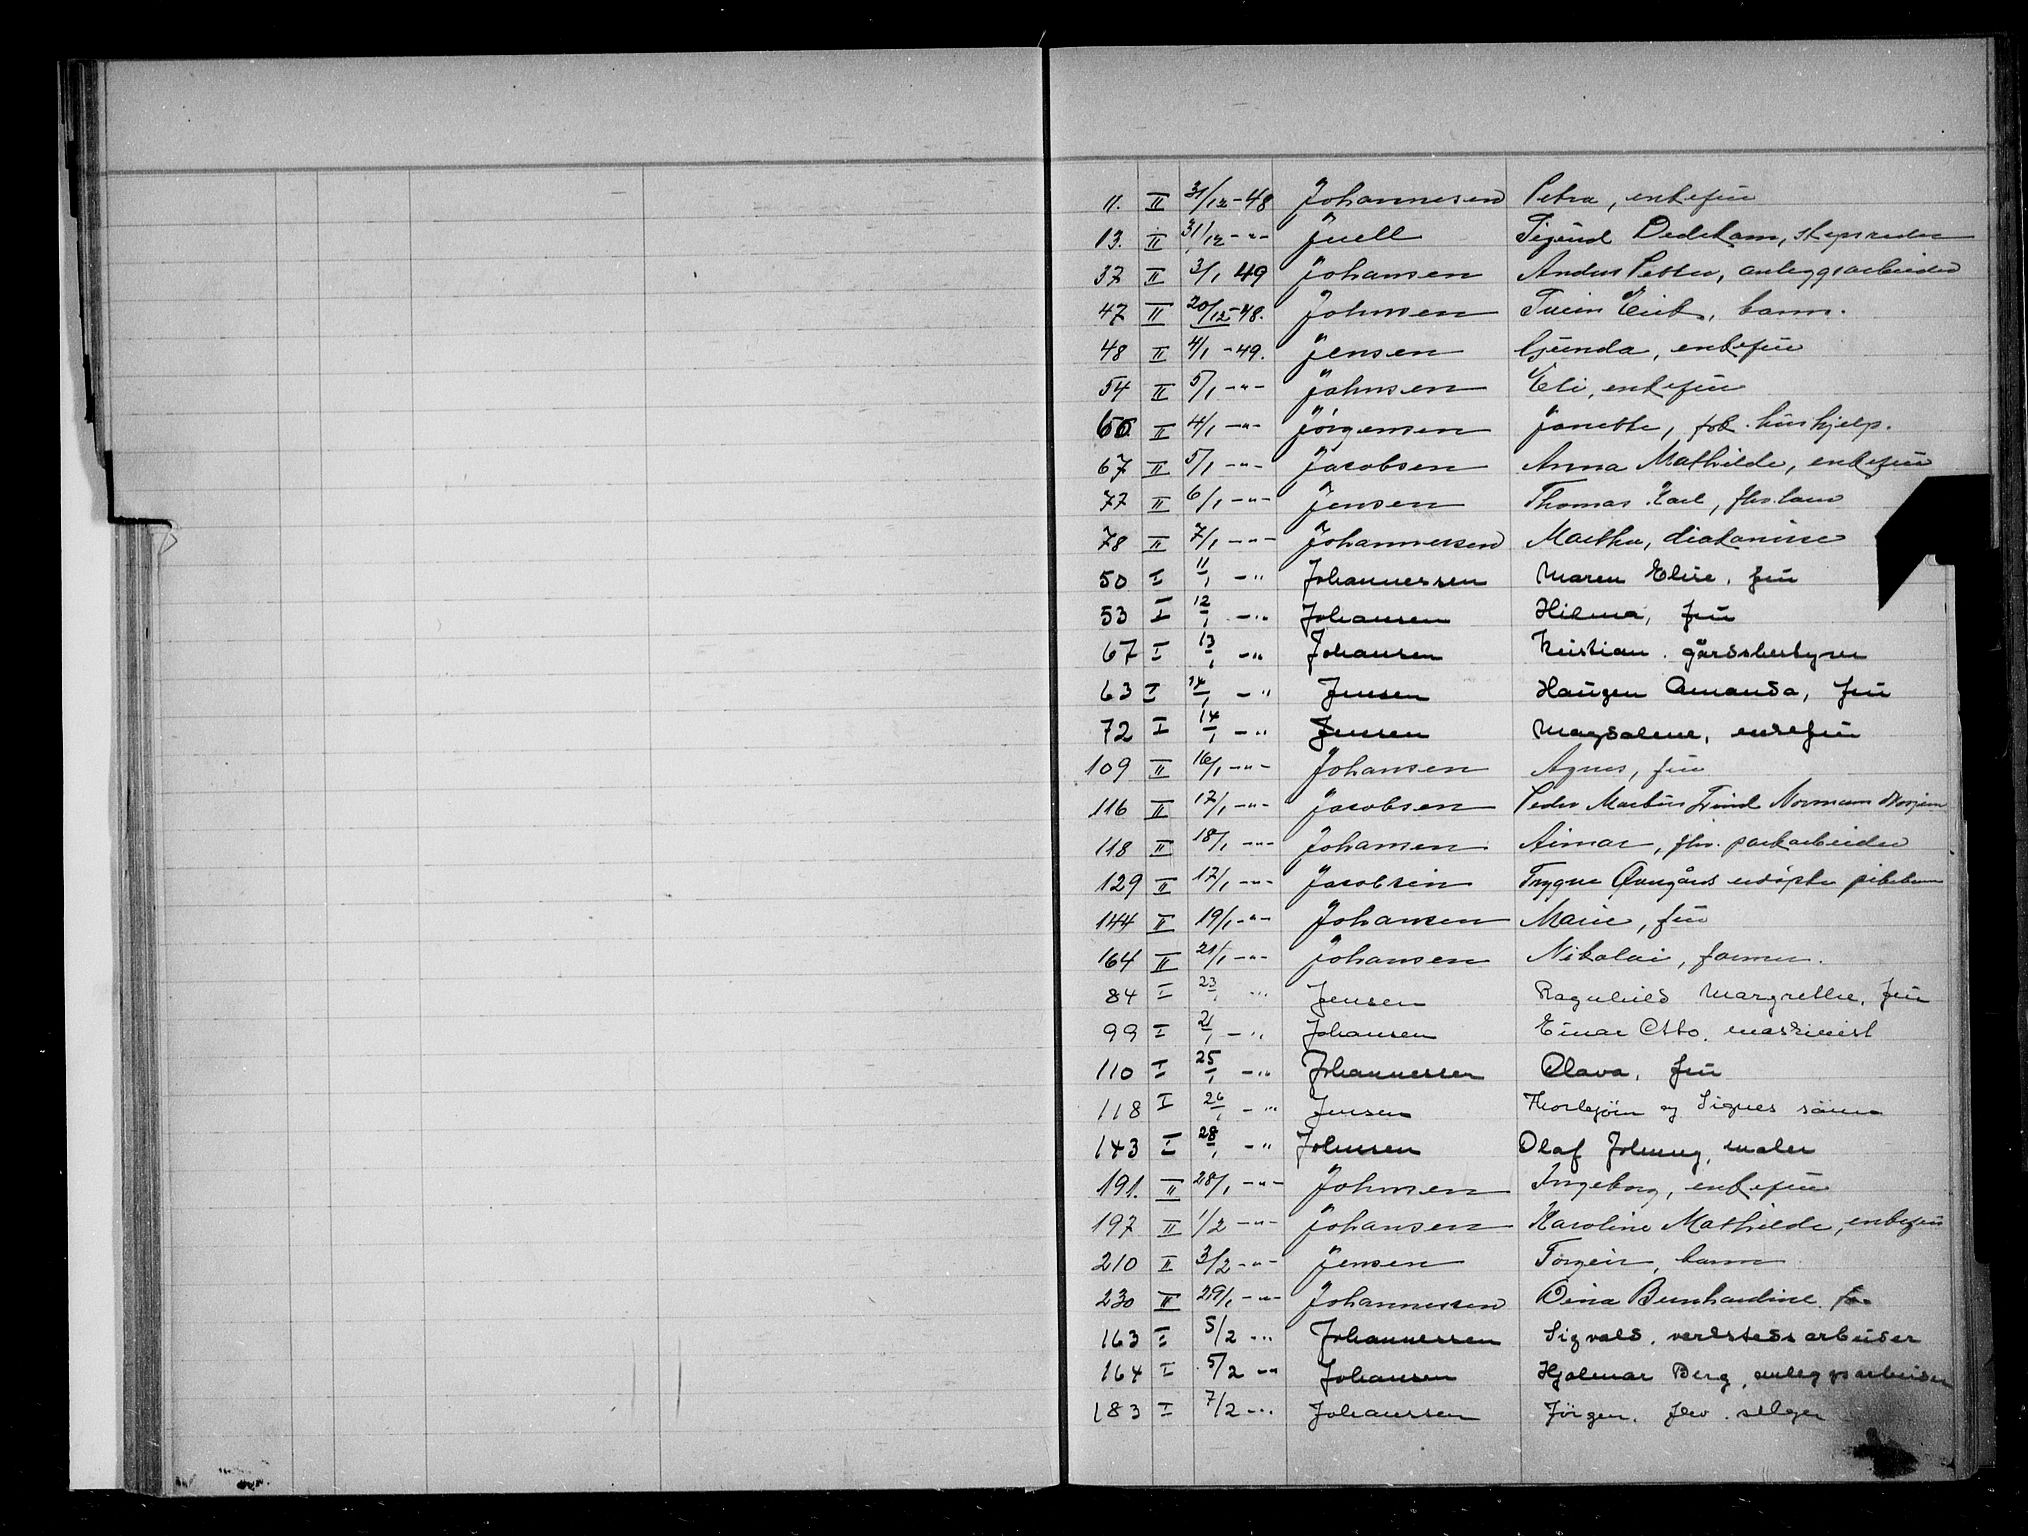 11. II 31/12-48 Johannesen Petra, enkefru
13. II 31/12 -"- Juell Sigurd Dedekam, skipsreder
37 II 3/1 49 Johansen Anders Petter, anleggsarbeider
47 II 20/12-48. Johnsen Svein Eirik, barn.
48 II 4/1 -49. Jensen Gunda, enkefru
54 II 5/1 -"- Johnsen Eli, enkefru
II 4/1 -"- Jörgensen Janette, hushjelp.
67 II 5/1 -"- Jacobsen Anna Mathilde, enkefru
77 II 6/1 -"- Jensen Thomas Karl,
78 II 7/1 -"- Johannessen Martha, diakonisse
50 I 11/1 -" Johannessen Maren Elise, fru
53 I 12/1 -" Johansen Hilma, fru
67 I 13/1 -" Johansen Kristian. gårdsbestyrer
63 I 14/1 -" Jensen Haugen Amanda, fru
72 I 14/1 -" Jensen Magdalene, enkefru
109 II 16/1 -"- Johansen Agnes, fru
116 II 17/1 -"- Jacobsen Peder Markus Normann
118 II 18/1 -"- Johansen Aimar, fhv. parkarbeider
129 II 17/1 -"- Jacobsen Trygve Övergårds udöpte pikebarn
144 II 19/1 -"- Johansen Marie, fru
164 II 21/1 -"- Johansen Nikolai, former.
84 I 23/1 " Jensen Ragnhild Margrethe, fru
99 I 21/1 -" Johansen Einar Otto. maskinist
110 I 25/1 -" Johannessen Olava, fru
118 I 26/1 -" Jensen Thorbjörn og Signes sönn
143 I 28/1 -" Johnsen Olaf Johnny, maler
191. II 28/1 -"- Johnsen Ingeborg, enkefru
197 II 1/2 -"- Johansen Karoline Mathilde, enkefru
210 II 3/2 -"- Jensen Torgeir, barn
230 II 29/1 -"- Johannessen Dina Bernhardine
163 I 5/2 -" Johannessen Sigvald, verkstedsarbeider
164 I 5/2 -" Johansen Hjalmar Berg, anleggsarbeider
183 I 7/2 -" Johanssen Jörgen, fhv. selger